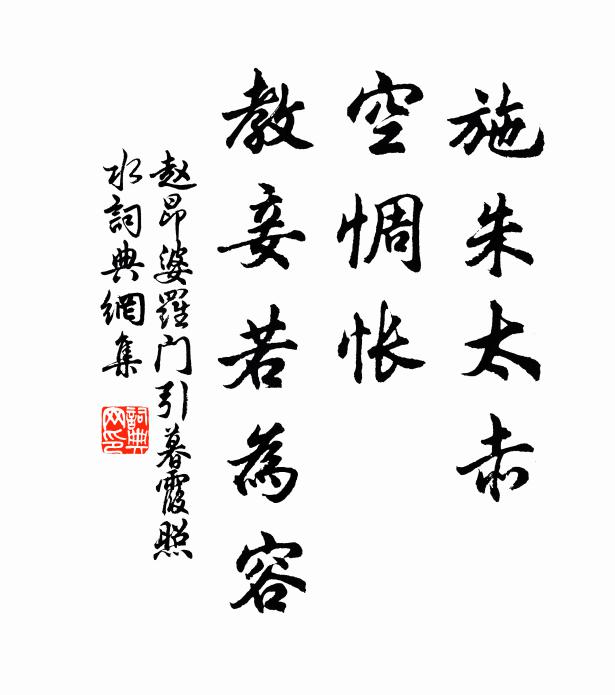 施朱太赤
空惆怅
教妾若為容
赵昂婆羅门引暮霞照
水詞典網集
詞典
网印